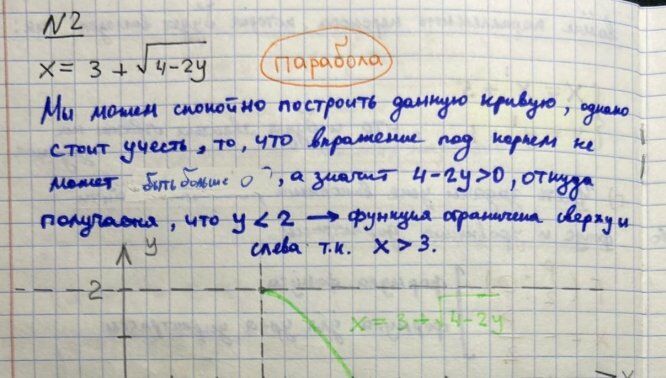 N2
x = 3 + √4-2y
Парабола
Мы можем спокойно построить данную кривую, однако
стоит учесть, то, что выражение под корнем не
может быть больше 0, а значит 4-2y>0, откуда
получаем, что y < 2 → функция ограничена сверху и
слева т.к. x > 3.
y
2
x = 3 + √4-2y
x